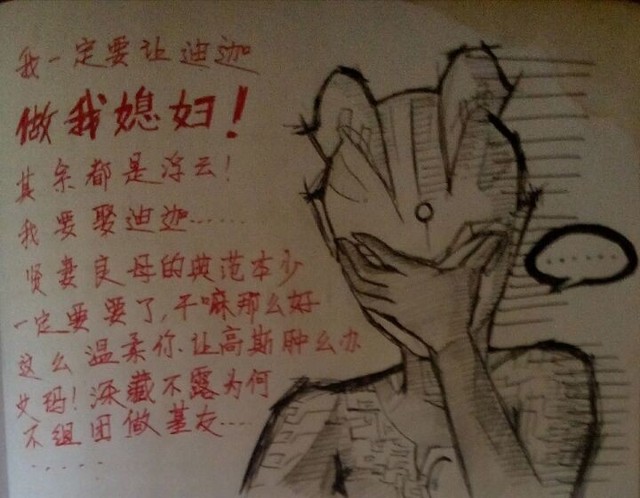 我一定要让迪迦
做我媳妇！
其余都是浮云！
我要娶迪迦……
贤妻良母的典范本少
一定要要了，干嘛那么好
这么温柔你让高斯肿么办
艾玛！深藏不露为何
不组团做基友……
……
……